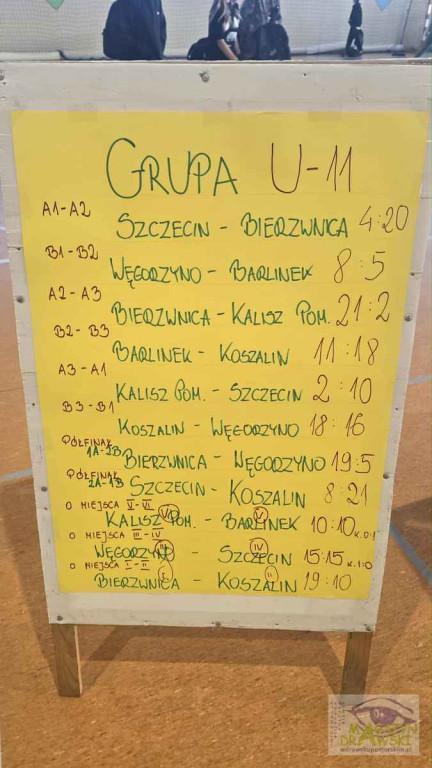 GRUPA U-11
A1-A2 SZCZECIN - BIERZWNICA 4:20
B1-B2 WĘGORZYNO - BARLINEK 8:5
A2-A3 BIERZWNICA - KALISZ POM. 21:2
B2-B3 BARLINEK - KOSZALIN 11:18
A3-A1 KALISZ POM. - SZCZECIN 2:10
B3-B1 KOSZALIN - WĘGORZYNO 18:16
PÓŁFINAŁ 1A-2B BIERZWNICA - WĘGORZYNO 19:5
PÓŁFINAŁ 2A-1B SZCZECIN - KOSZALIN 8:21
O MIEJSCA V-VI KALISZ POM. VI - BARLINEK V 10:10 K. 0:1
O MIEJSCA III-IV WĘGORZYNO III - SZCZECIN IV 15:15 K. 1:0
O MIEJSCA I-II BIERZWNICA I - KOSZALIN II 19:10
DRAWSKI